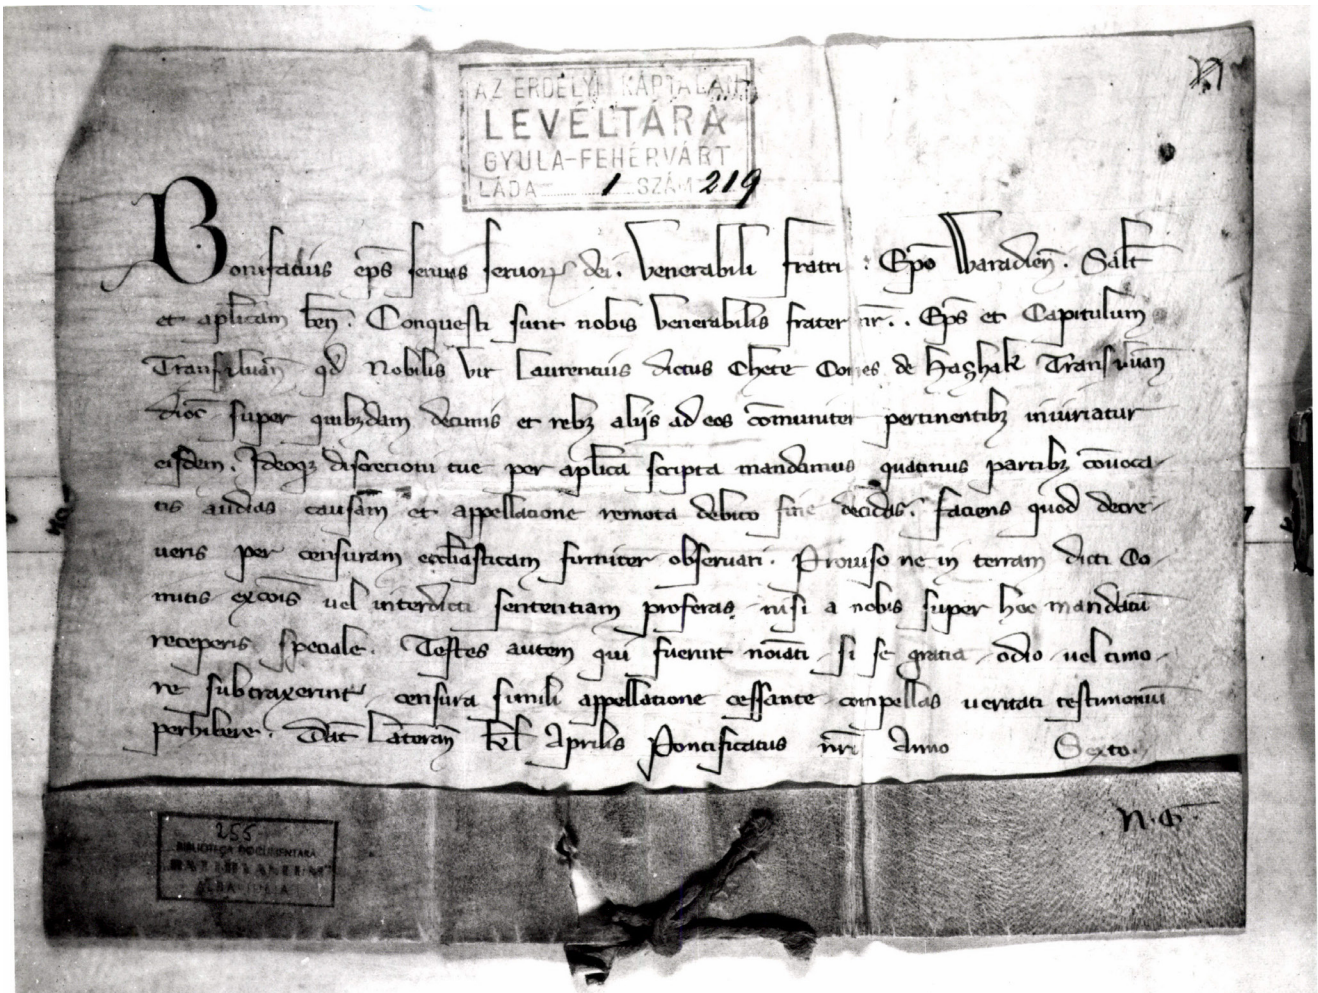 AZ ERDÉLYI KÁPTALAN
LEVÉLTÁRA
GYULA-FEHÉRVÁRT
LÁDA 1 SZÁM 219
Bonifatius ep̄s seruus seruoꝝ dei. Venerabili fratri . Ep̄o Waradien̄. Salt̄
et aplicam̄ ben̄. Conquesti sunt nobis Venerabilis frater nr̄. . Ep̄s et Capitulum
Transiluan̄ qd̄ Nobilis Vir Laurentius dictus Chete Comes de haghak Transiluan̄
dioc̄ super quibusdam decimis et rebꝫ alijs ad eos com̄uniter pertinentibꝫ iniuriatur
eisdem. Ideoqꝫ discretioni tue per ap̄lica scripta mandamus quatinus partibꝫ conuoca-
tis audias causam et appellatione remota debito fine decidas. faciens quod decre-
ueris per censuram eccl̄iasticam firmiter obseruari. Prouiso ne in terram dicti Co-
mitis exco͞is uel interdicti sententiam proferas nisi a nobis super hoc mandatū
receperis speciale. Testes autem qui fuerint noīati si se gratia odio uel timo-
re subtraxerint censura simili appellatione cessante compellas ueritati testimoniū
perhibere. Dat̄ Lateran̄ kl̄ Aprilis Pontificatus nr̄i Anno Sexto.
N. G.
255
BIBLIOTECA DOCUMENTARA
BATTHYANEUM
ALBA IULIA